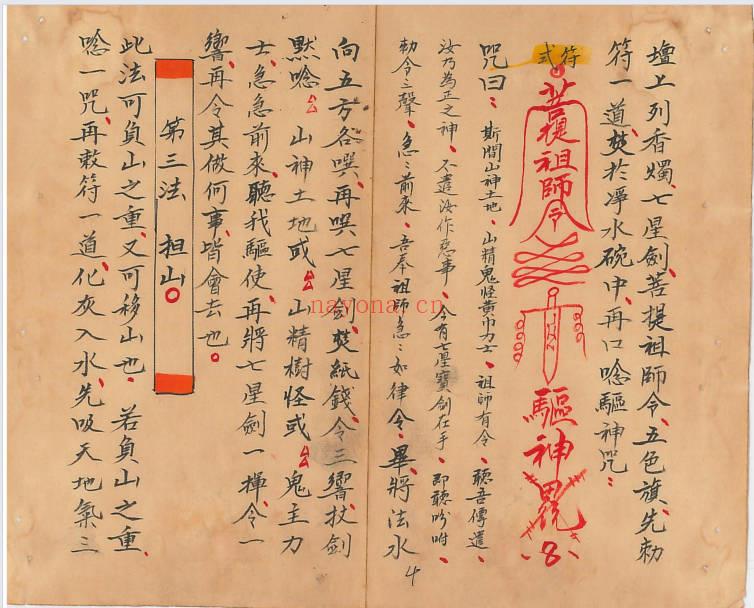 壇上列香燭、七星劍、菩提祖師令、五色旗、先勅
符一道、焚於凈水碗中、再口唸驅神咒：
符式
菩提祖師令
驅神
咒曰：斯間山神土地、山精鬼怪黄巾力士、祖師有令、聽吾傳遣、
汝乃為正之神、不遣汝作惡事、今有七星寶劍在手、即聽吩咐、
勅令三聲、急:前來、吾奉祖師急:如律令、畢、將法水
向五方各噀、再噀七星劍、焚紙錢、令三響、扙劍
默唸、厶山神土地或厶山精樹怪或厶鬼主力
士、急急前來、聽我驅使、再將七星劍一揮、令一
響、再令其做何事、皆會去也。
第三法 担山
此法可負山之重、又可移山也、若負山之重、
唸一咒、再敕符一道、化灰入水、先吸天地氣三
nayona.cn